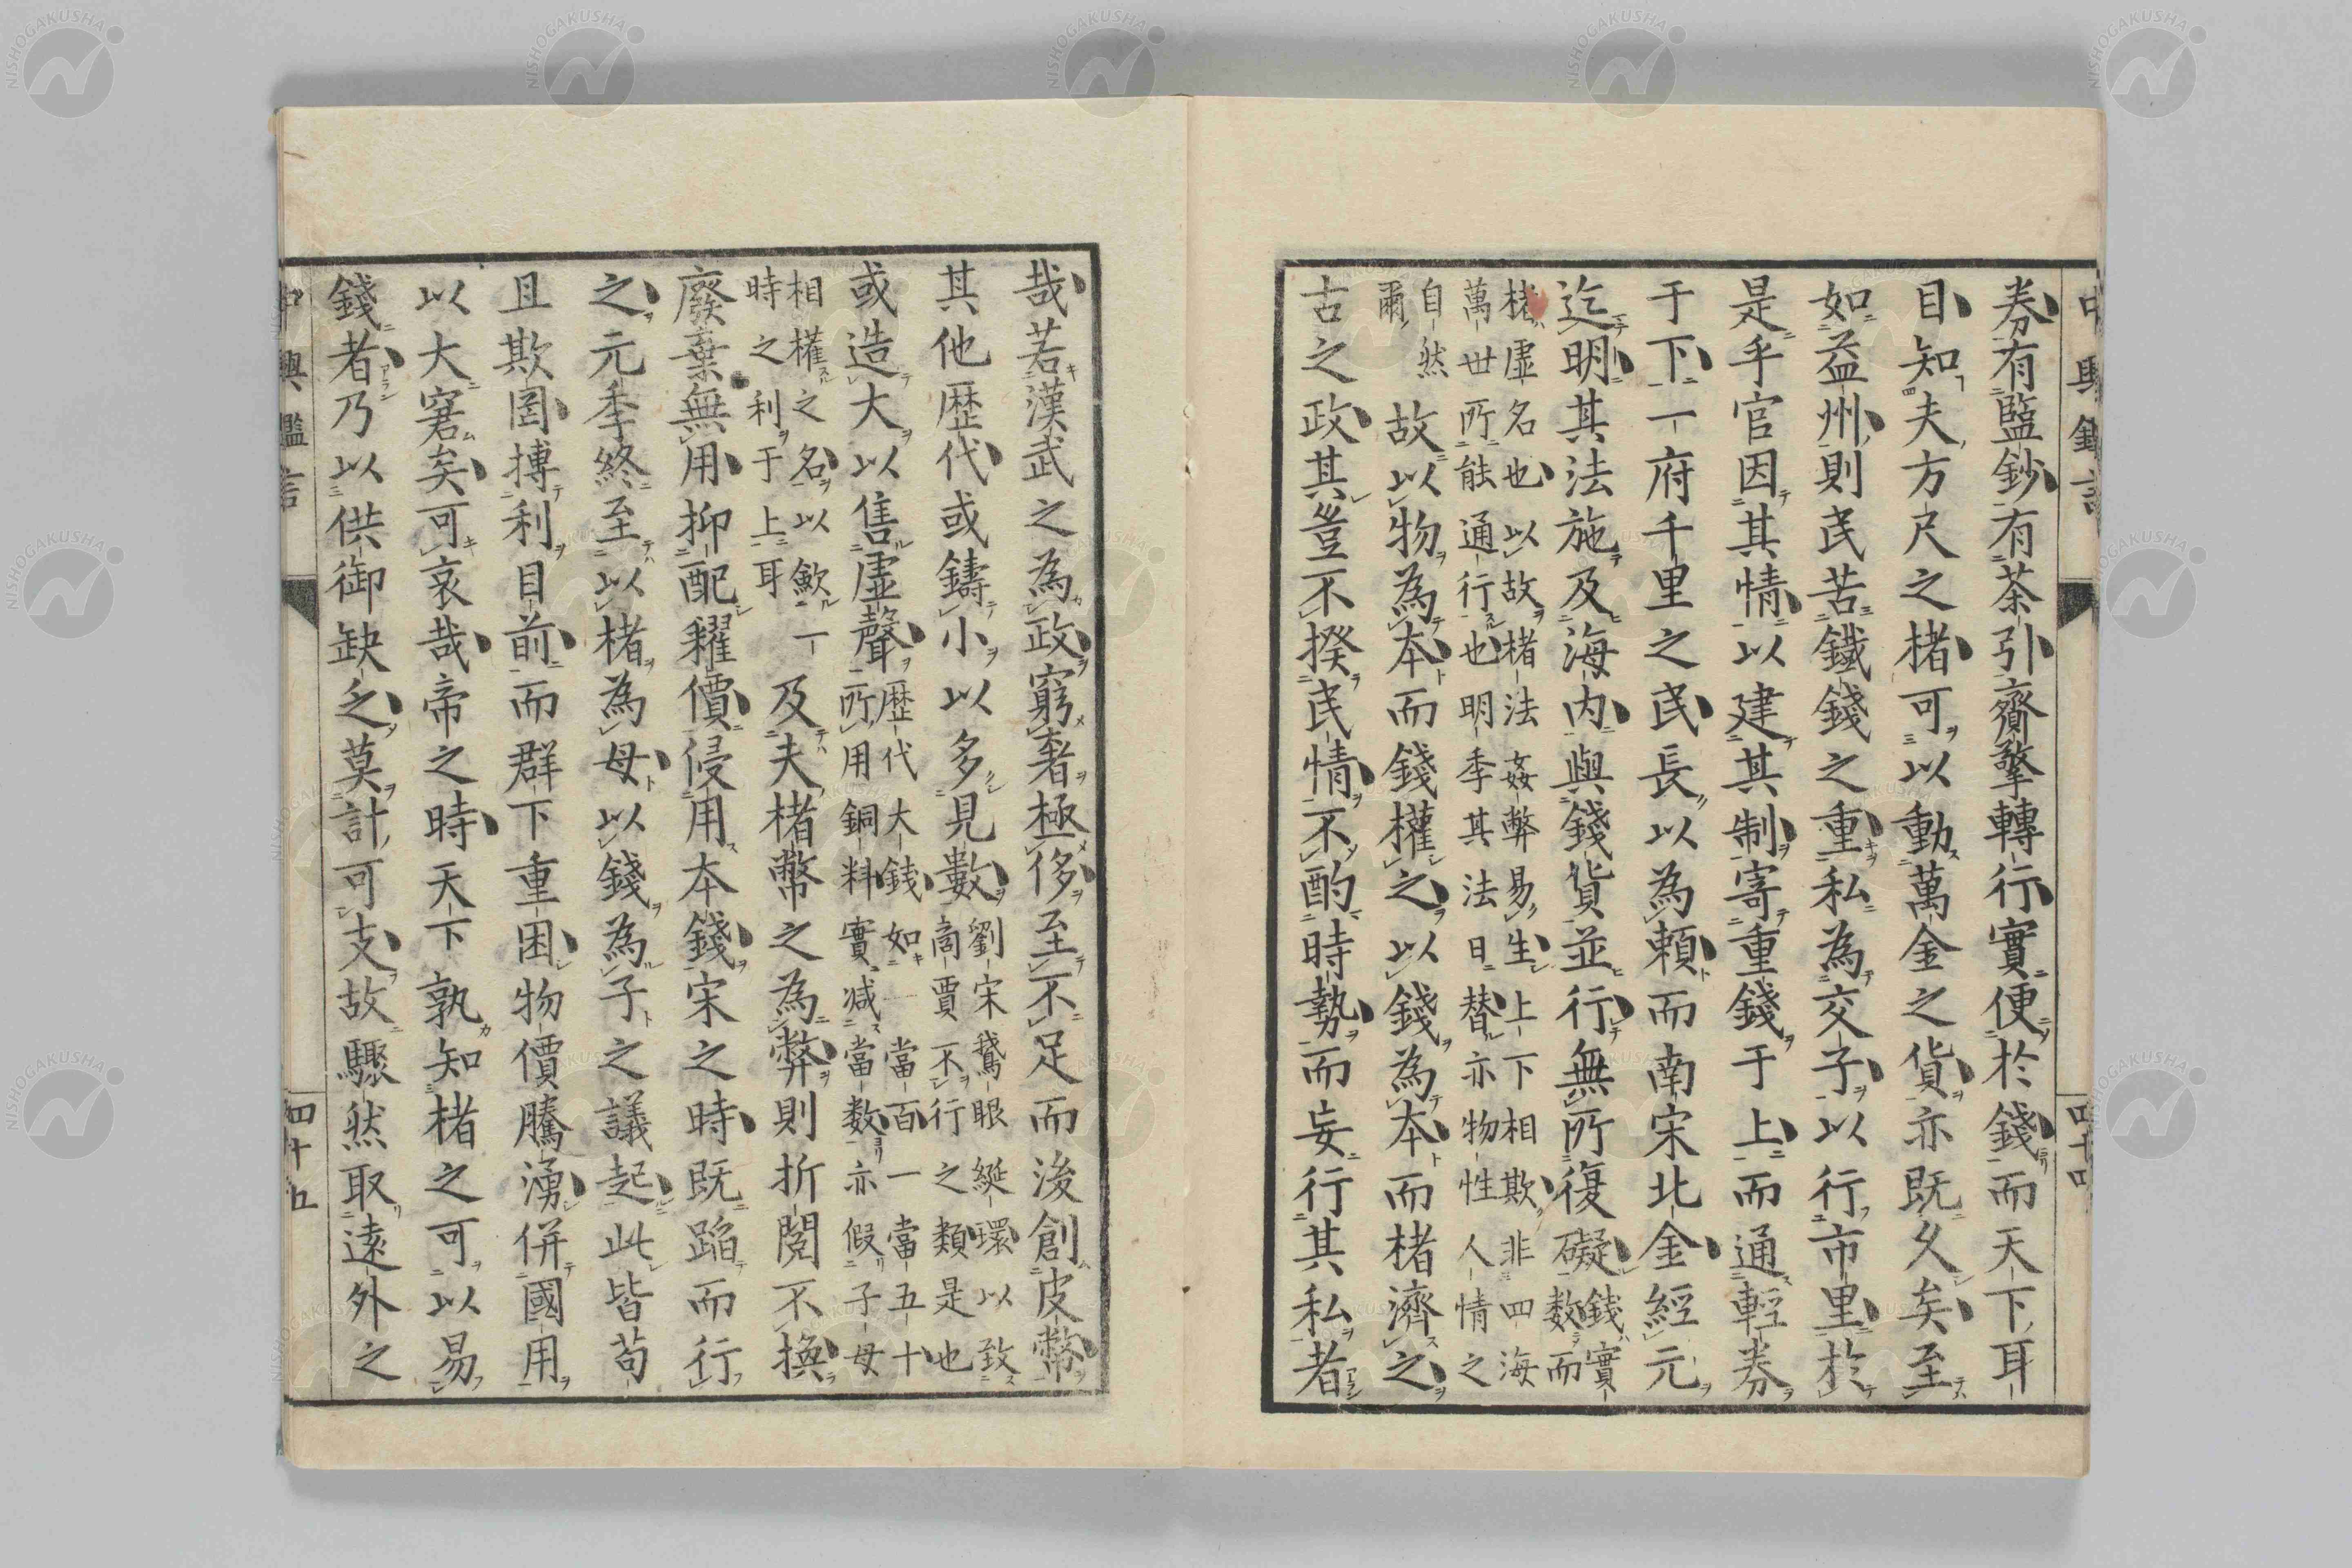 券有鹽鈔有茶引齎擎轉行實便於錢而天下耳
目知夫方尺之楮可以動萬金之貨亦既久矣至
如益州則民苦鐵錢之重私為交子以行市里於
是乎官因其情以建其制寄重錢于上而通輕券
于下一府千里之民長以為賴而南宋北金經元
迄明其法施及海内與錢貨並行無所復礙錢實數而
楮虛名也以故楮法姦弊易生上下相欺非四海
萬世所能通行也明季其法日替亦物性人情之
自然爾故以物為本而錢權之以錢為本而楮濟之
古之政其豈不揆民情不酌時勢而妄行其私者
中興鑑言
四十四
哉若漢武之為政窮奢極侈至不足而後創皮幣
其他歷代或鑄小以多見數劉宋鵞眼綖環以致商賈不行之類是也
或造大以售虛聲歷代大錢如一當百一當五十所用銅料實减當数亦假子母
相權之名以斂一時之利于上耳及夫楮幣之為弊則折閱不換
廢棄無用抑配糴價侵用本錢宋之時既蹈而行
之元季終至以楮為母以錢為子之議起此皆苟
且欺罔摶利目前而群下重困物價騰湧併國用
以大窘矣可哀哉帝之時天下孰知楮之可以易
錢者乃以供御缺乏莫計可支故驟然取遠外之
中興鑑言
四十五
NISHOGAKUSHA